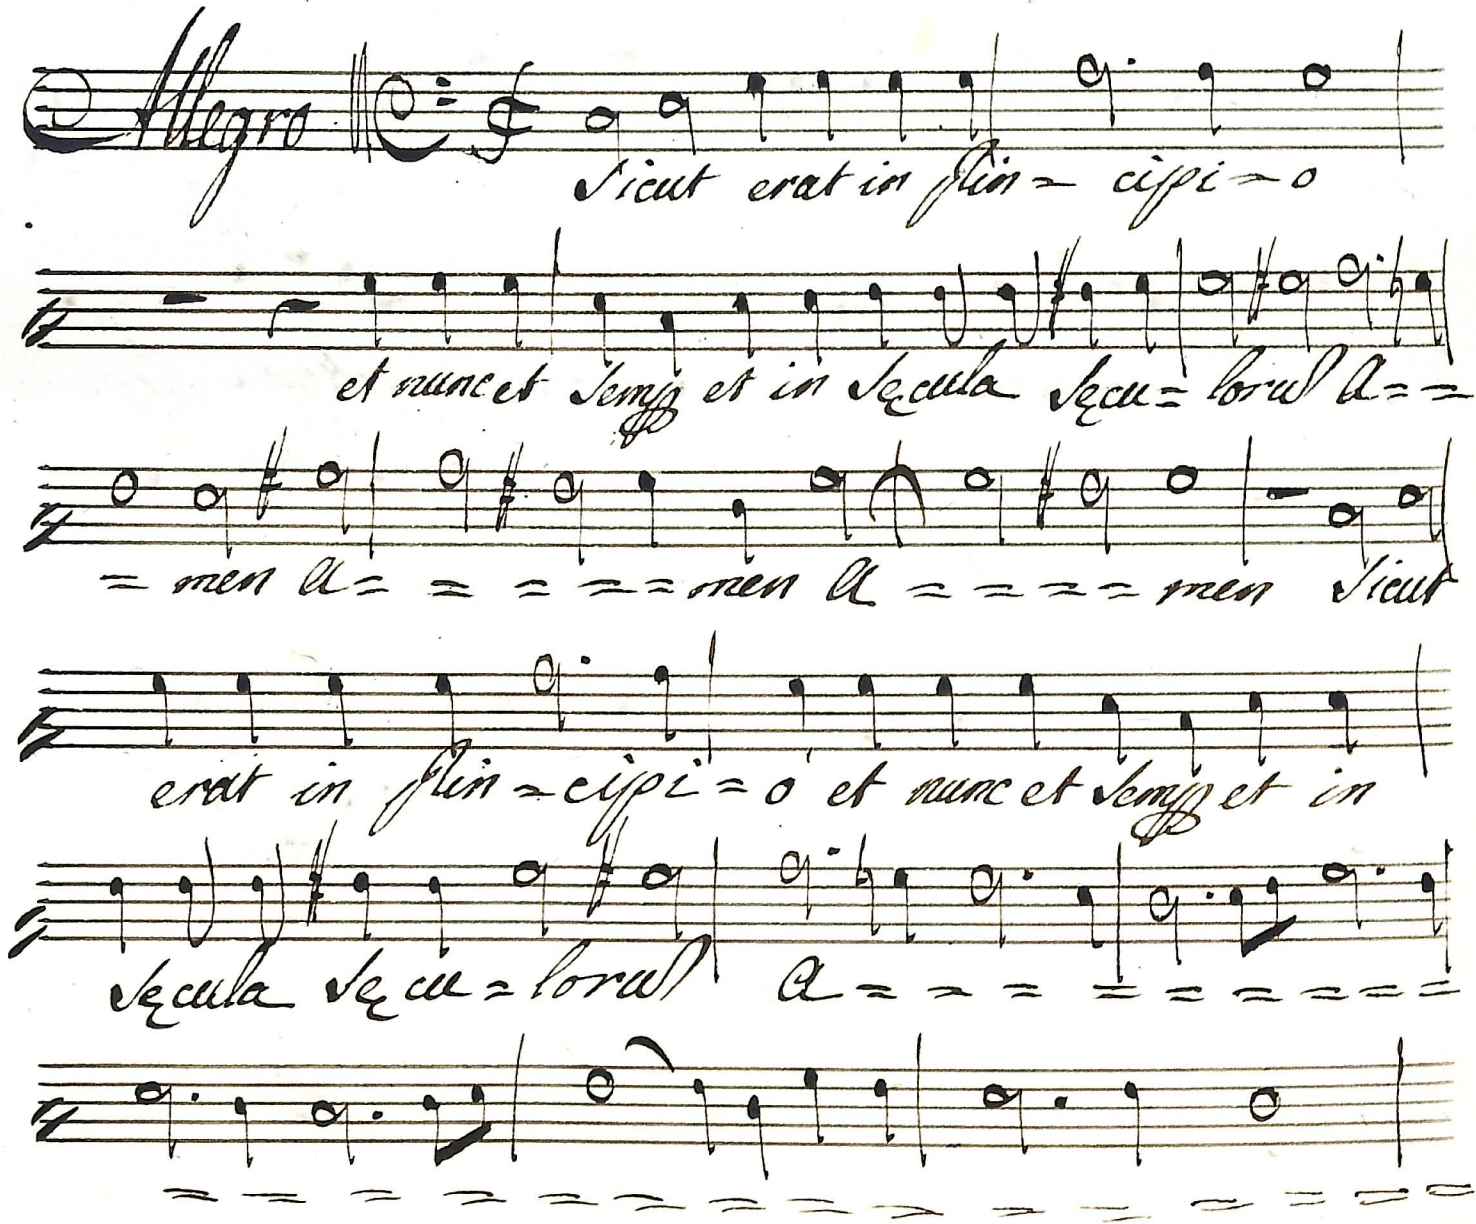 Allegro
Sicut erat in prin= cipi=o
et nunc et Semp et in Sęcula Sęcu=lorum A==
= men A= = = = =men A = = = = men Sicut
erat in prin=cipi=o et nunc et Semp et in
Sęcula Sęcu=lorum A = = = = = = = = =
= = = = = = = = = = = = = =